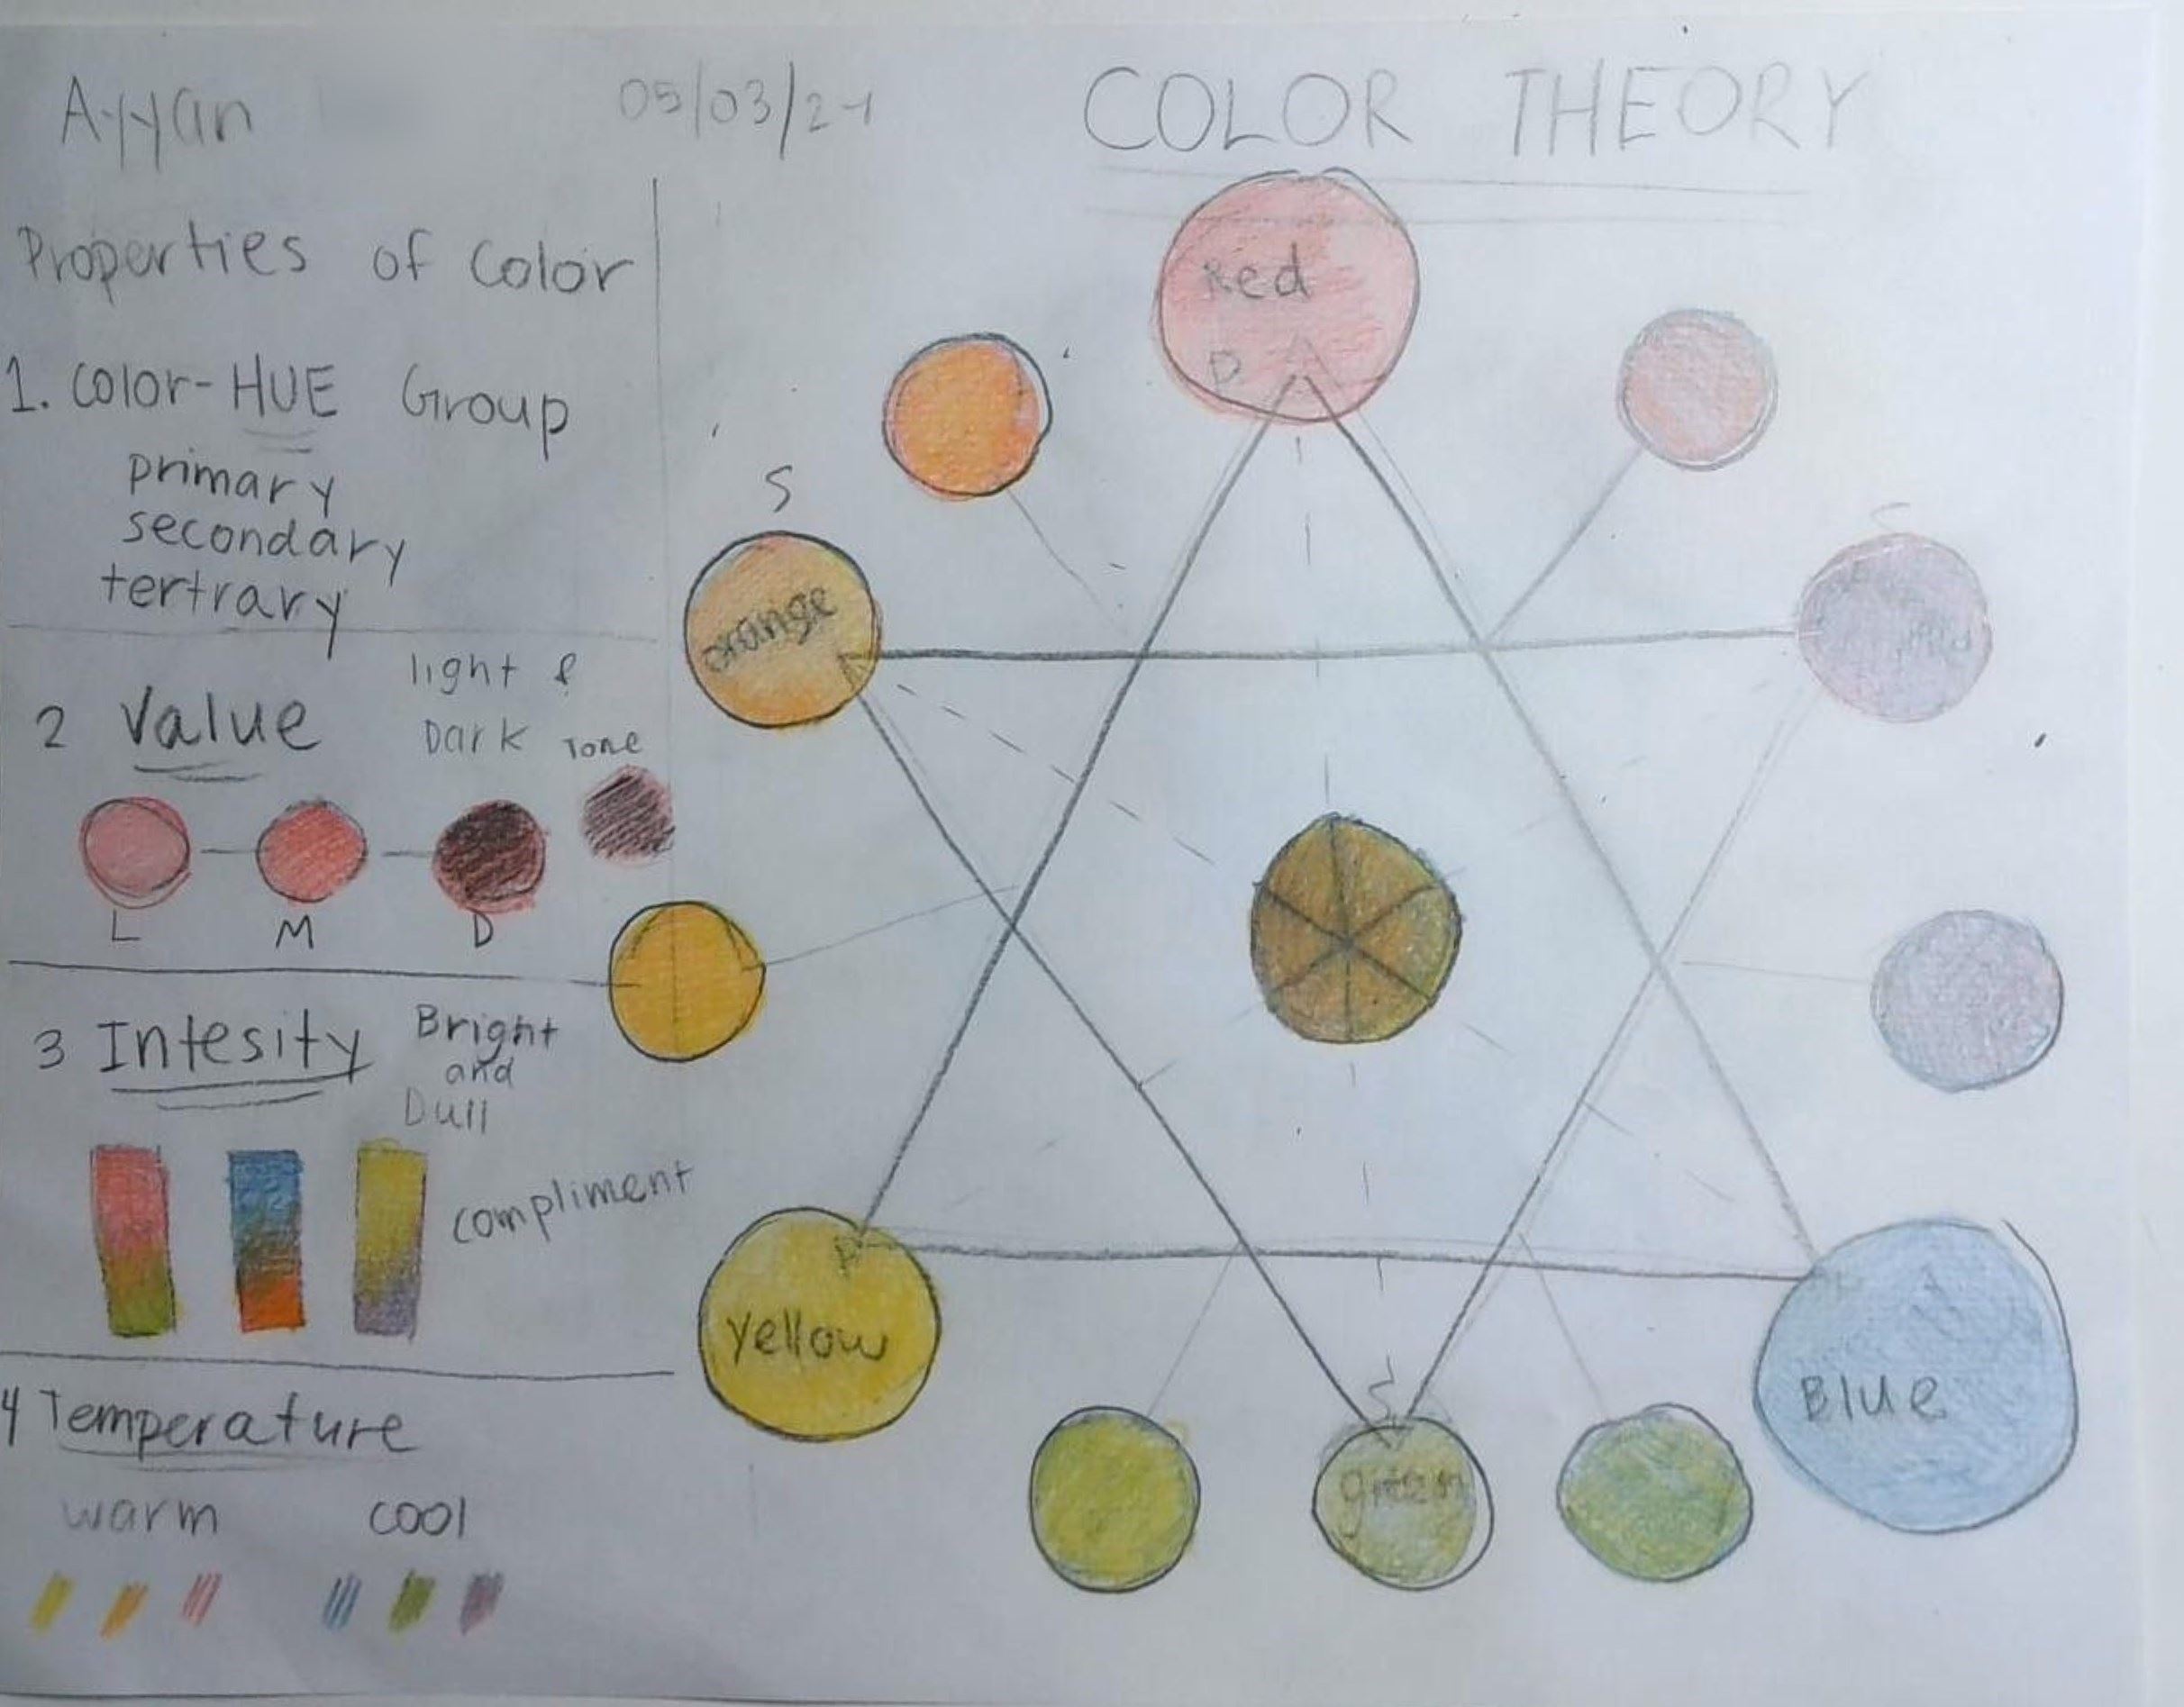 Ayyan 05/03/21
COLOR THEORY
Properties of Color
1. Color-HUE Group
primary
secondary
tertrary
2 Value light &
Dark Tone
L M D
3 Intesity Bright
and
Dull
compliment
4 Temperature
warm cool
Red
P
S
orange
S
P
yellow
S
green
Blue